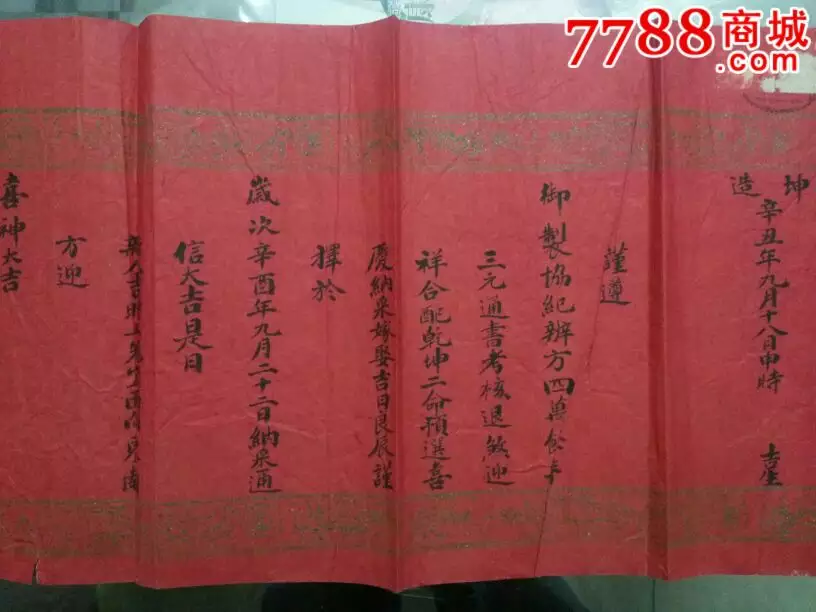 7788商城
坤
造
辛丑年九月十八日申時 吉星
謹遵
御製協紀辨方四萬餘年
三元通書考核退煞迎
祥合配乾坤二命預選喜
慶納采嫁娶吉日良辰謹
擇於
歲次辛酉年九月二十二日納采通
信大吉是日
新人吉時
方迎
喜神大吉